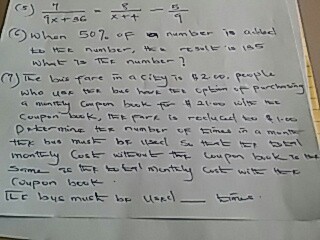 (5) 7/9x+36 = 8/x+4 - 5/9
(6) When 50% of a number is added
to the number, the result is 185
What is The number?
(7) The bus fare in a city is $2.00. people
who use the bus have the option of purchasing
a monthly coupon book for $21.00 with the
coupon book, the fare is reduced to $1.00
Determine the number of times in a month
the bus must be used so that the total
monthly cost without the coupon book is the
same as the total monthly cost with the
coupon book.
The bus must be used ___ times.